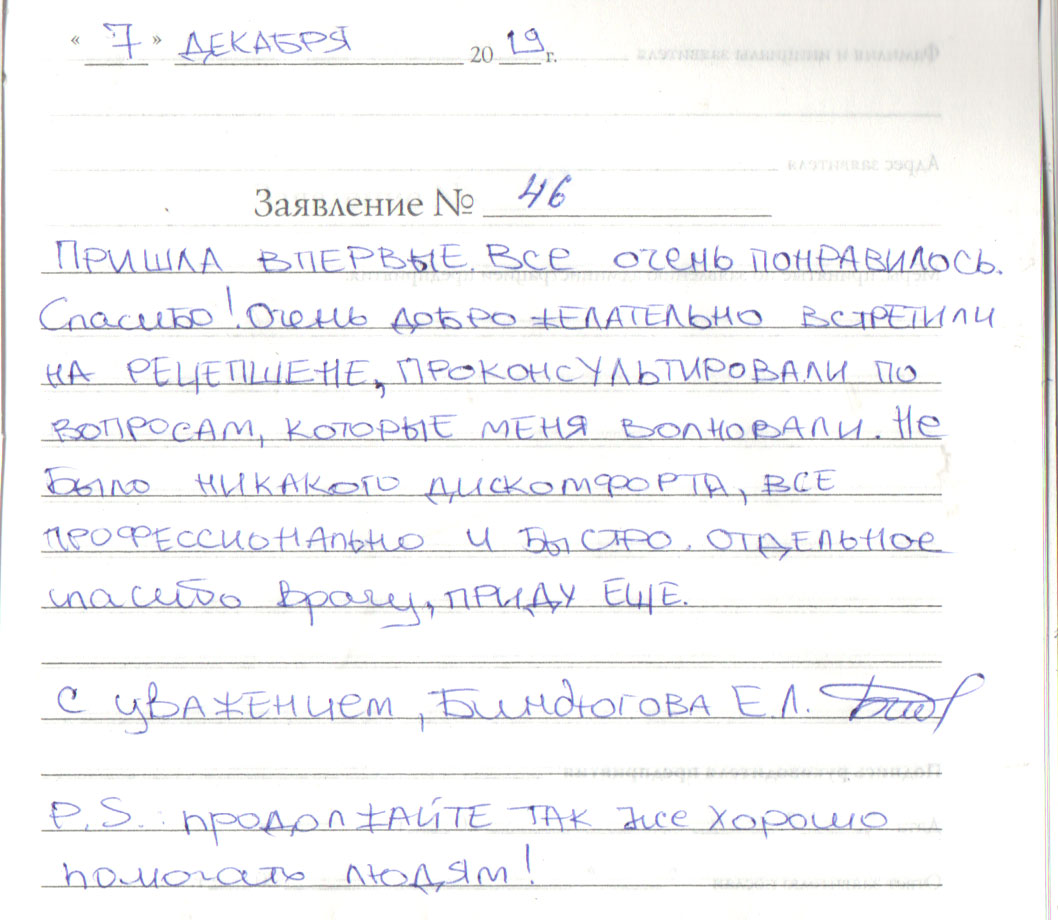 « 7 » ДЕКАБРЯ 2019 г.
Фамилия и инициалы заявителя
Адрес заявителя
Заявление № 46
ПРИШЛА ВПЕРВЫЕ. ВСЕ ОЧЕНЬ ПОНРАВИЛОСЬ.
Спасибо! Очень ДОБРОЖЕЛАТЕЛЬНО ВСТРЕТИЛИ
НА РЕЦЕПШЕНЕ, ПРОКОНСУЛЬТИРОВАЛИ ПО
ВОПРОСАМ, КОТОРЫЕ МЕНЯ ВОЛНОВАЛИ. НЕ
БЫЛО НИКАКОГО ДИСКОМФОРТА, ВСЕ
ПРОФЕССИОНАЛЬНО И БЫСТРО. ОТДЕЛЬНОЕ
спасибо врачу, ПРИДУ ЕЩЕ.
С УВАЖЕНИЕМ, БИНДЮГОВА Е.Л.
Подпись руководителя предприятия
P.S.: ПРОДОЛЖАЙТЕ ТАК же хорошо
помогать ЛЮДЯМ!